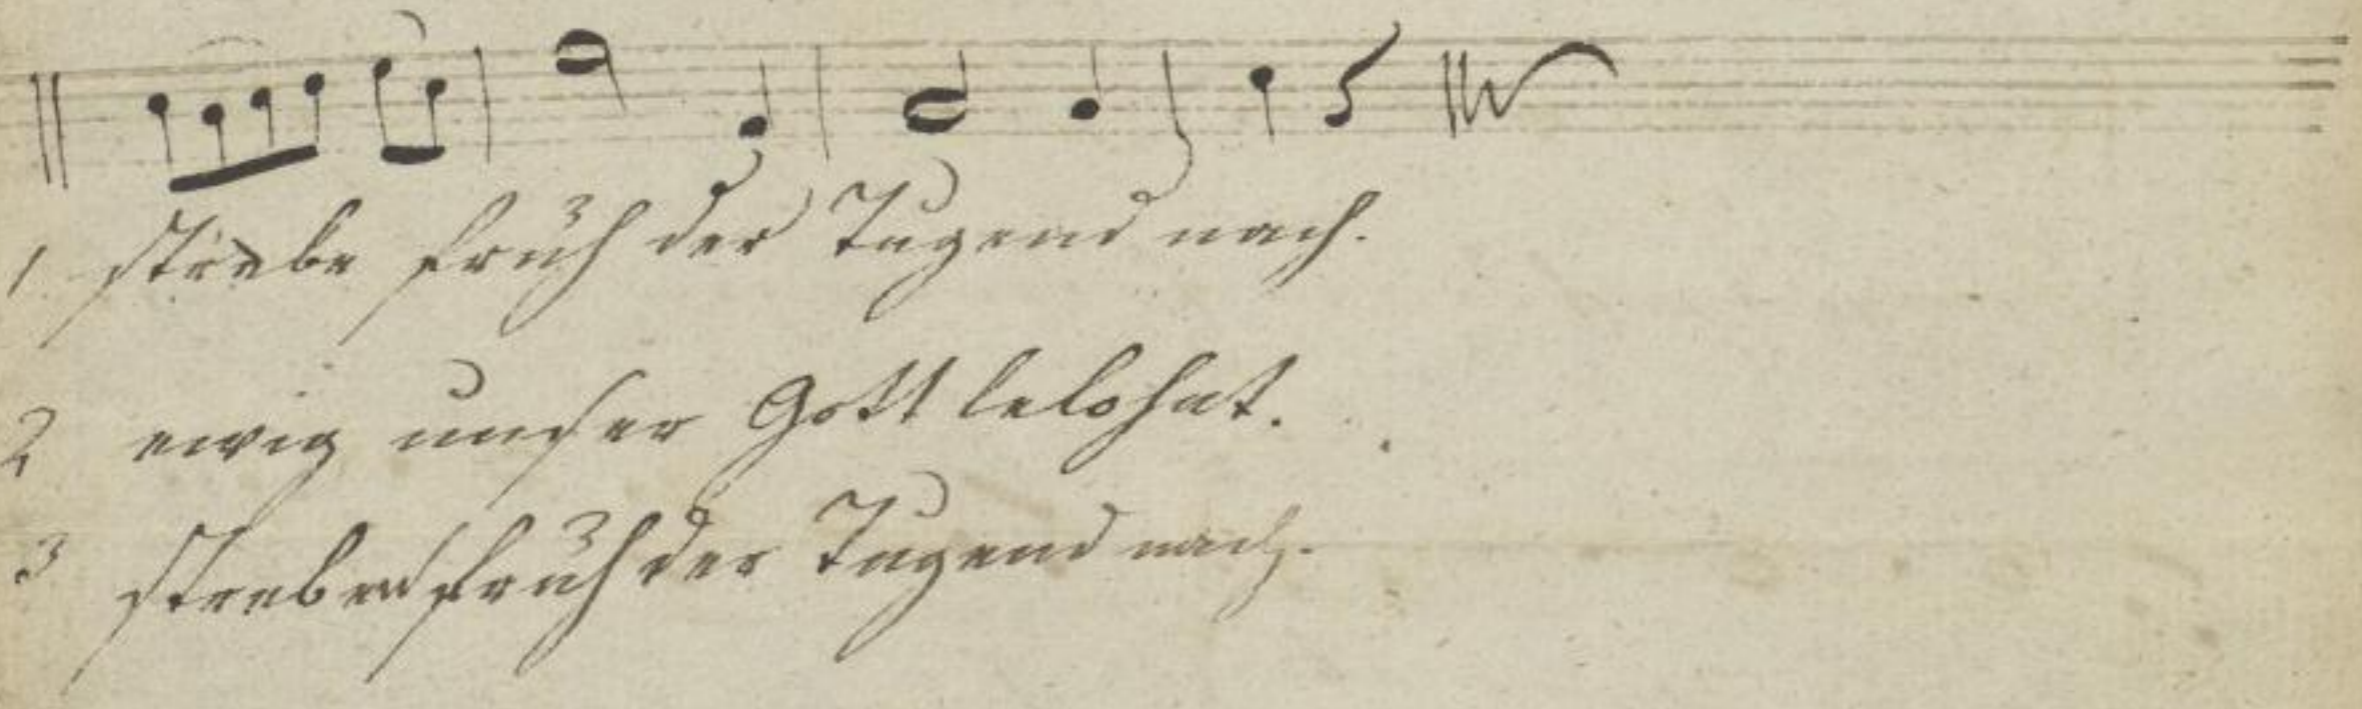 1. strebe früh der Tugend nach.
2 ewig unser Gott belohnt.
3 strebend früh der Tugend nach.